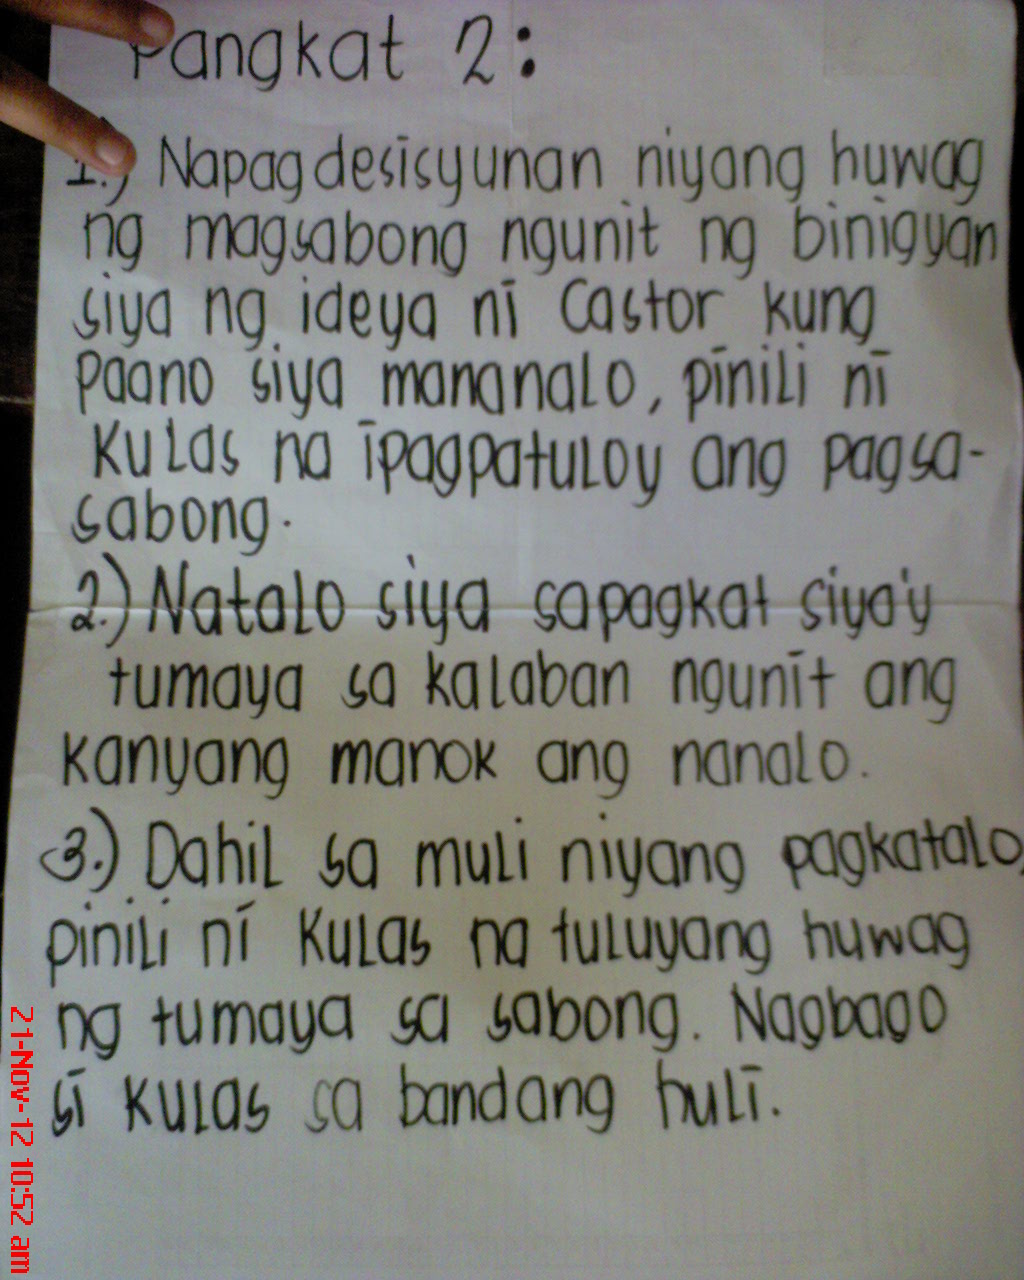 Pangkat 2:
1.) Napagdesisyunan niyang huwag
ng magsabong ngunit ng binigyan
siya ng ideya ni Castor kung
paano siya mananalo, pinili ni
Kulas na ipagpatuloy ang pagsa-
sabong.
2.) Natalo siya sapagkat siya'y
tumaya sa kalaban ngunit ang
kanyang manok ang nanalo.
3.) Dahil sa muli niyang pagkatalo,
pinili ni Kulas na tuluyang huwag
ng tumaya sa sabong. Nagbago
si Kulas sa bandang huli.
21-Nov-12 10:52 am